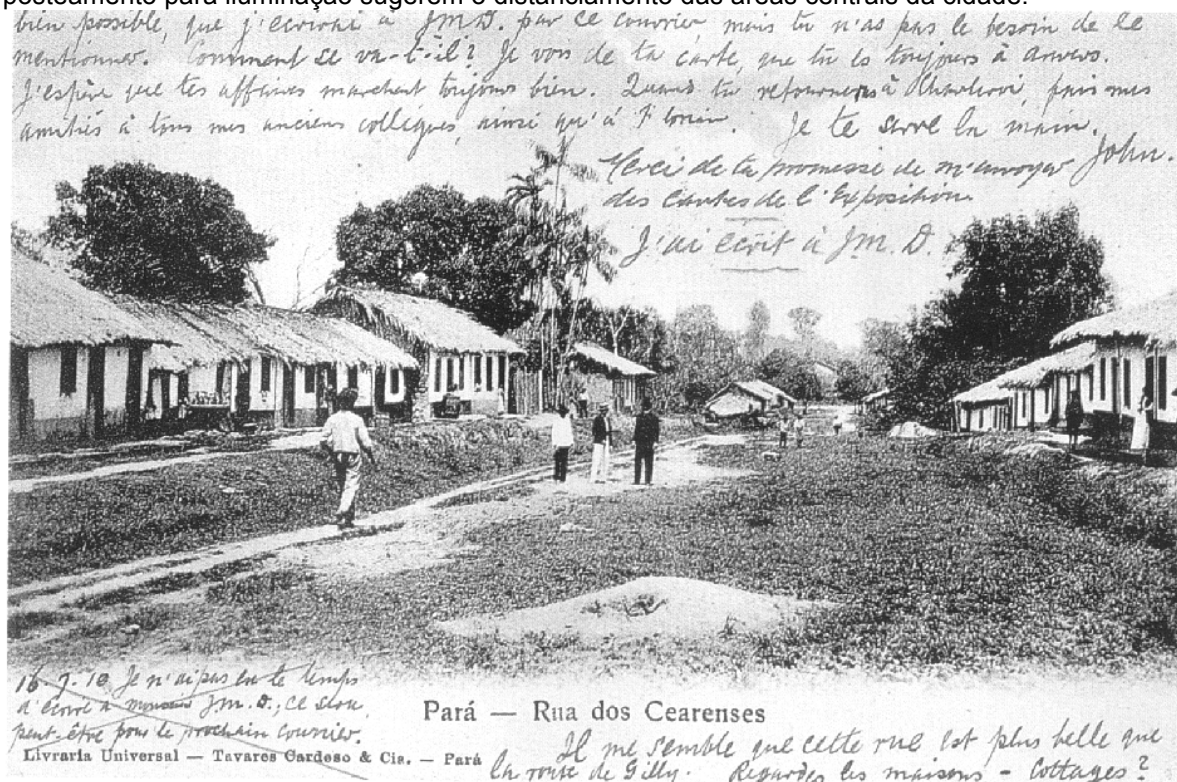 posteamento para iluminação sugerem o distanciamento das áreas centrais da cidade.
bien possible, que j'écrirai à J.M.D. par ce courrier, mais tu n'as pas le besoin de le
mentionner. Comment se va-t-il? Je vois de ta carte, que tu es toujours à Anvers.
J'espère que tes affaires marchent toujours bien. Quand tu retourneras à Charleroi, fais mes
amitiés à tous mes anciens collègues, ainsi qu'à Je te serre la main.
John.
Merci de ta promesse de m'envoyer
des cartes de l'Exposition
J'ai écrit à J.M.D.
16.7.10 Je n'ai pas eu le temps
d'écrire à J.M.D.; ce sera
peut-être pour le prochain courrier.
Pará — Rua dos Cearenses
Livraria Universal — Tavares Cardoso & Cia. — Pará
Il me semble que cette rue est plus belle que
la route de Gilly. Regardes les maisons - Cottages?